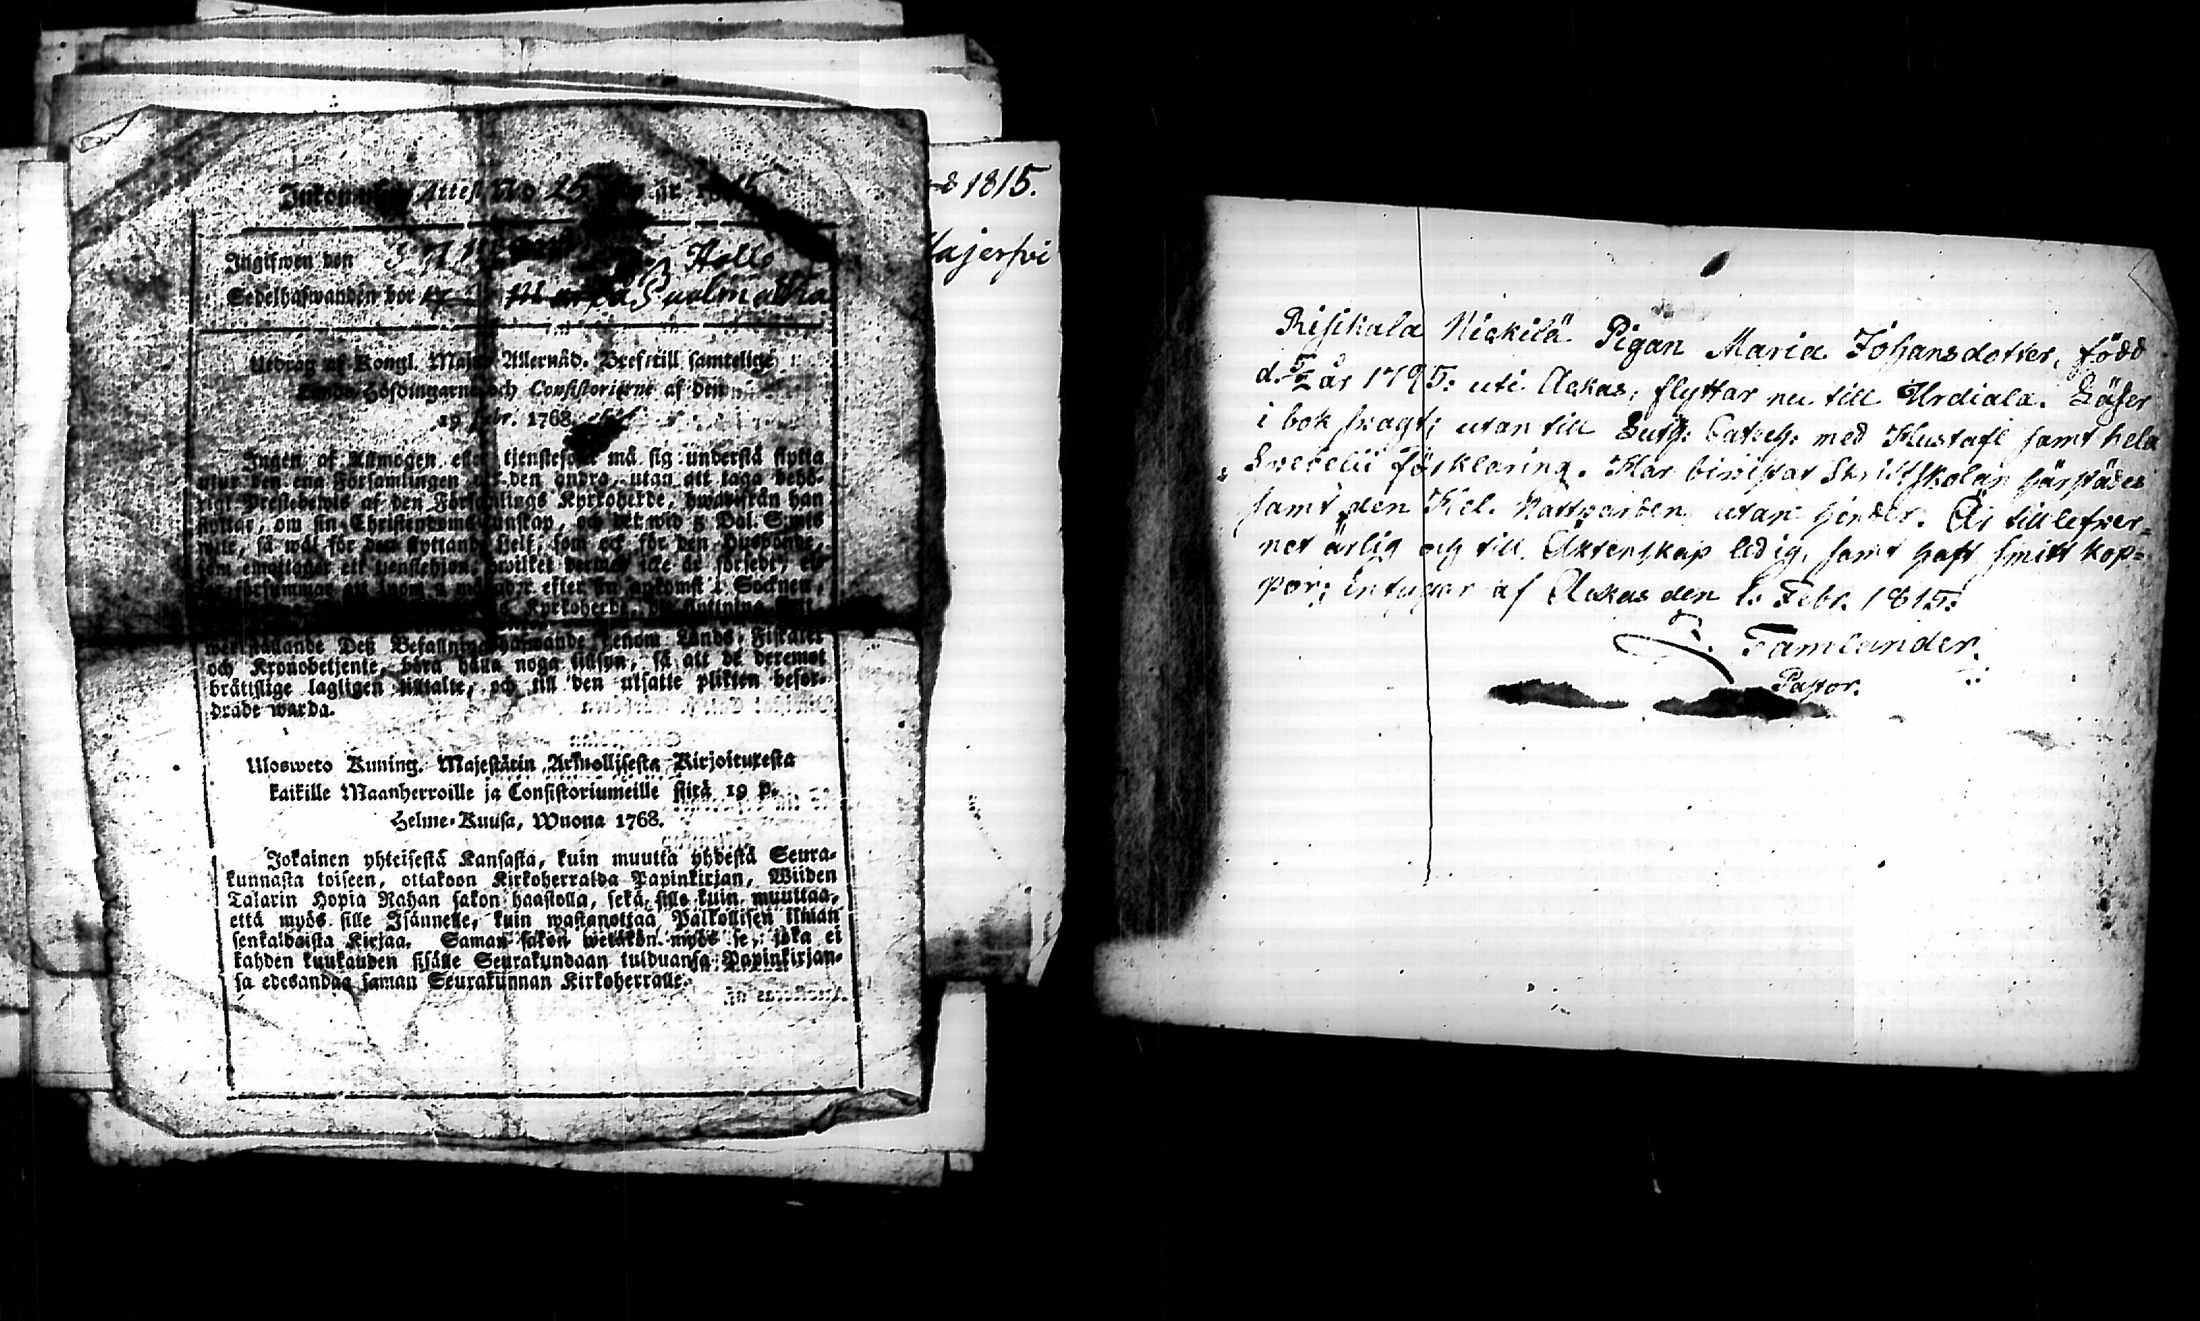 Inkommen Attest No 25 år
Ingifwen den Hollo
Sedelhafwanden bor Puolmatka
Utdrag af Kongl. Maj:ts Allernåd. Bref till samtelige
Lands-Höfdingarne och Consistorierne af den
19 Febr. 1768.
Ingen af Allmogen eller tjenstefolk må sig understå flytta
utur den ena Församlingen i den andra, utan att taga behö-
rigt Prestebewis af den Församlings Kyrkoherde, hwarifrån han
flyttar, om sin Christendoms kunskap, och det wid 5 Dal. S:mts
wite, så wäl för den flyttande sielf, som ock för den Husbonde,
som emottager ett tjenstehjon, hwilket dermed icke är försedt,
försummar att inom 2 månader efter sin ankomst i Socknen,
Kyrkoherde,
werkställande Deß Befallningshafwande genom Lands-Fiskaler
och Kronobetjente, böra hålla noga tillsyn, så att de deremot
bråttslige lagligen tilltalte, och till den utsatte plikten befor-
drade warda.
Uloswеto Kuning. Majestätin Armollisesta Kirjoituxesta
kaikille Maanherroille ja Consistoriumeille siitä 19 p.
Helme-Kuusa, Wuona 1768.
Jokainen yhteisestä Kansasta, kuin muutta yhdestä Seura-
kunnasta toiseen, ottakoon Kirkoherralda Papinkirjan, Wiiden
Talarin Hopia Rahan sakon haastolla, sekä sille kuin muuttaa,
että myös sille Isännelle, kuin wastanottaa Palkollisen ilman
senkaldaista Kirjaa. Saman sakon wetäkön myös se, joka ei
kahden kuukauden sisälle Seurakundaan tulduansa Papinkirjan-
sa edesandaa saman Seurakunnan Kirkoherralle.
1815.
Majersvi
Rijsikala Nickilä Pigan Maria Johansdotter, född
d. 5/2 år 1795: uti Ackas, flyttar nu till Urdiala. Läser
i bok svagt; utan till Luth: Catech: med Hustafl samt hela
Svebelii förklaring. Har bivistat Skriftskolan härstädes
samt den Hel. Nattvarden utan hinder. Är till lefver-
net ärlig och till Äktenskap ledig, samt haft smitt kop-
por; intygar af Ackas den 1. Febr. 1815:
F. Tamlander.
Pastor.